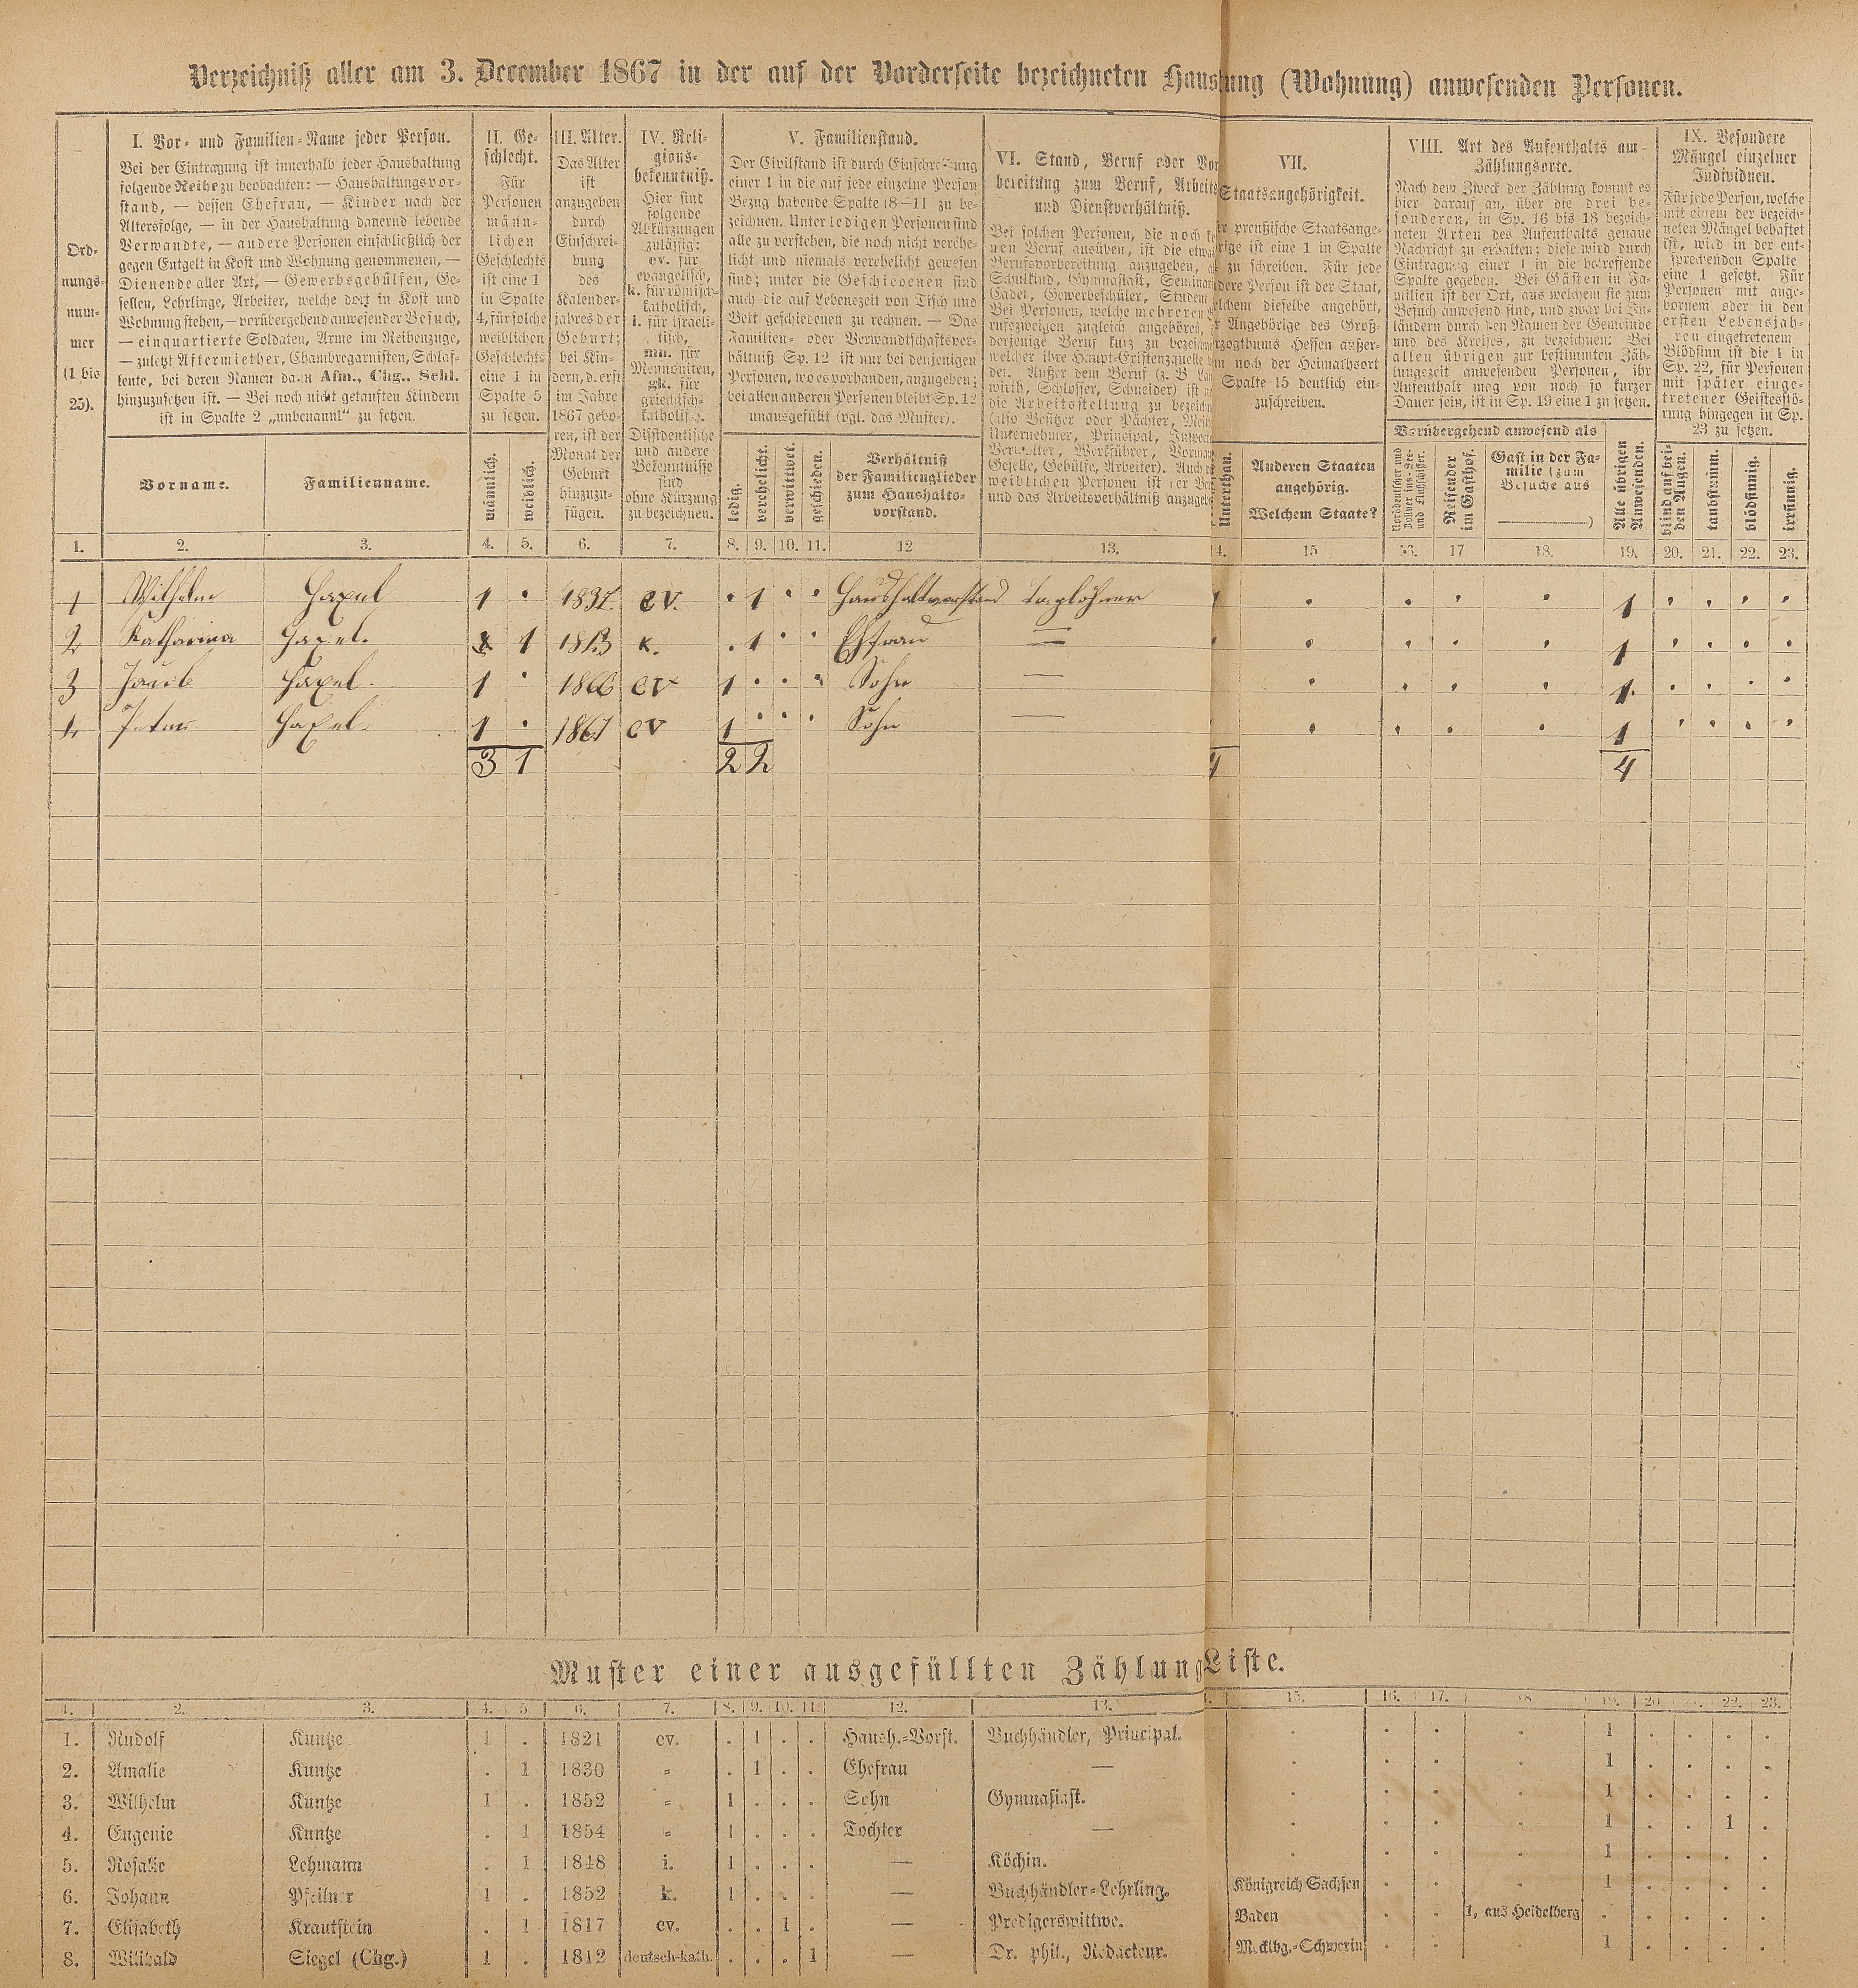 Verzeichniß aller am 3. December 1867 in der auf der Vorderseite bezeichneten Haus ung (Wohnung) anwesenden Personen.
Ord-
nungs-
num-
mer
(1 bis
25).
I. Vor- und Familien-Name jeder Person.
Bei der Eintragung ist innerhalb jeder Haushaltung
folgende Reihe zu beobachten: — Haushaltungsvor-
stand, — dessen Ehefrau, — Kinder nach der
Altersfolge, — in der Haushaltung dauernd lebende
Verwandte, — andere Personen einschließlich der
gegen Entgelt in Kost und Wohnung genommenen, —
Dienende aller Art, — Gewerbsgehülfen, Ge-
sellen, Lehrlinge, Arbeiter, welche dort in Kost und
Wohnung stehen, — vorübergehend anwesender Besuch,
— einquartierte Soldaten, Arme im Reihenzuge,
— zuletzt Aftermiether, Chambregarnisten, Schlaf-
leute, bei deren Namen dann Afm., Chg., Schl.
hinzuzusetzen ist. — Bei noch nicht getauften Kindern
ist in Spalte 2 „unbenannt" zu setzen.
Vorname.
Familienname.
II. Ge-
schlecht.
Für
Personen
männ-
lichen
Geschlechts
ist eine 1
in Spalte
4, für solche
weiblichen
Geschlechts
eine 1 in
Spalte 5
zu setzen.
männlich.
weiblich.
III. Alter.
Das Alter
ist
anzugeben
durch
Einschrei-
bung
des
Kalender-
jahres der
Geburt;
bei Kin-
dern, d. erst
im Jahre
1867 gebo-
ren, ist der
Monat der
Geburt
hinzuzu-
fügen.
IV. Reli-
gions-
bekenntniß.
Hier sind
folgende
Abkürzungen
zulässig:
ev. für
evangelisch,
k. für römisch-
katholisch,
i. für israeli-
tisch,
mn. für
Mennoniten,
gk. für
griechisch-
katholisch.
Dissidentische
und andere
Bekenntnisse
sind
ohne Kürzung
zu bezeichnen.
V. Familienstand.
Der Civilstand ist durch Einschreibung
einer 1 in die auf jede einzelne Person
Bezug habende Spalte (8—11) zu be-
zeichnen. Unter ledigen Personen sind
alle zu verstehen, die noch nicht verehe-
licht und niemals verehelicht gewesen
sind; unter die Geschiedenen sind
auch die auf Lebenszeit von Tisch und
Bett geschiedenen zu rechnen. — Das
Familien- oder Verwandtschaftsver-
hältniß Sp. 12 ist nur bei denjenigen
Personen, wo es vorhanden, anzugeben;
bei allen anderen Personen bleibt Sp. 12
unausgefüllt (vgl. das Muster).
ledig.
verehelicht.
verwittwet.
geschieden.
Verhältniß
der Familienglieder
zum Haushalts-
vorstand.
VI. Stand, Beruf oder Vor
bereitung zum Beruf, Arbeits
und Dienstverhältniß.
Bei solchen Personen, die noch ke
nen Beruf ausüben, ist die etwa
Berufsvorbereitung anzugeben, a
Schulkind, Gymnasiast, Seminar
Cadet, Gewerbeschüler, Student
Bei Personen, welche mehreren
rufszweigen zugleich angehören,
derjenige Beruf kurz zu bezeichn
welcher ihre Haupt-Existenzquelle
det. Außer dem Beruf (z. B. La
wirth, Schlosser, Schneider) ist
die Arbeitsstellung zu bezeich
(also Besitzer oder Pächter, Meis
Unternehmer, Principal, Inspect
Verwalter, Werkführer, Vorman
Geselle, Gehülfe, Arbeiter). Auch
weiblichen Personen ist der Be
und das Arbeitsverhältniß anzugeb
VII.
Staatsangehörigkeit.
r preußische Staatsange-
rige ist eine 1 in Spalte
zu schreiben. Für jede
dere Person ist der Staat,
elchem dieselbe angehört,
r Angehörige des Groß-
rzogthums Hessen außer-
m noch der Heimathsort
Spalte 15 deutlich ein-
zuschreiben.
Unterthan.
Anderen Staaten
angehörig.
Welchem Staate?
VIII. Art des Aufenthalts am
Zählungsorte.
Nach dem Zweck der Zählung kommt es
hier darauf an, über die drei be-
sonderen, in Sp. 16 bis 18 bezeich-
neten Arten des Aufenthalts genaue
Nachricht zu erhalten; diese wird durch
Eintragung einer 1 in die betreffende
Spalte gegeben. Bei Gästen in Fa-
milien ist der Ort, aus welchem sie zum
Besuch anwesend sind, und zwar bei In-
ländern durch den Namen der Gemeinde
und des Kreises, zu bezeichnen: Bei
allen übrigen zur bestimmten Zäh-
lungszeit anwesenden Personen, ihr
Aufenthalt mag von noch so kurzer
Dauer sein, ist in Sp. 19 eine 1 zu setzen.
Vorübergehend anwesend als
Norddeutscher und
Zollver ins-See-
und Flußschiffer.
Reisender
im Gasthof.
Gast in der Fa-
milie (zum
Besuche aus
)
Alle übrigen
Anwesenden.
IX. Besondere
Mängel einzelner
Individuen.
Für jede Person, welche
mit einem der bezeich-
neten Mängel behaftet
ist, wird in der ent-
sprechenden Spalte
eine 1 gesetzt. Für
Personen mit ange-
bornem oder in den
ersten Lebensjah-
ren eingetretenem
Blödsinn ist die 1 in
Sp. 22, für Personen
mit später einge-
tretener Geistesstö-
rung hingegen in Sp.
23 zu setzen.
blind auf bei-
den Augen.
taubstumm.
blödsinnig.
irrsinnig.
1. 2. 3. 4. 5. 6. 7. 8. 9. 10. 11. 12 13. 4. 15 16. 17 18. 19. 20. 21. 22. 23.
1 Wilhelm Haxel 1 . 1837 ev. . 1 . . Haushaltvorstand Taglöhner 1 . . . . 1 . . . .
2 Katharina Haxel. 1 1843 k. . 1 . . Ehfrau — . . . . 1 . . . .
3 Jacob Haxel. 1 . 1866 ev 1 . . . Sohn — . . . . 1. . . . .
4 Peter Haxel. 1 . 1867 ev 1 . . . Sohn — . . . . 1 . . . .
3 1 2 2 4 4
Muster einer ausgefüllten Zählung Liste.
1. 2. 3. 4. 5 6. 7. 8. 9. 10. 11. 12. 13. 15. 16. 17. 18 19. 20. 21. 22. 23.
1. Rudolf Kuntze 1 . 1821 ev. . 1 . . Haush.-Vorst. Buchhändler, Principal. . . . . 1 . . . .
2. Amalie Kuntze . 1 1830 „ . 1 . . Ehefrau — . . . . 1 . . . .
3. Wilhelm Kuntze 1 . 1852 „ 1 . . . Sohn Gymnasiast. . . . . 1 . . . .
4. Eugenie Kuntze . 1 1854 „ 1 . . . Tochter — . . . . 1 . . 1 .
5. Rosalie Lehmann . 1 1848 i. 1 . . . — Köchin. . . . . 1 . . . .
6. Johann Pfeilner 1 . 1852 k. 1 . . . — Buchhändler-Lehrling. Königreich Sachsen . . . 1 . . . .
7. Elisabeth Krautstein . 1 1817 ev. . . 1 . — Predigerswittwe. Baden . . 1, aus Heidelberg . . . . .
8. Willbald Siegel (Chg.) 1 . 1812 deutsch-kath. . . . 1 — Dr. phil., Redacteur. Mecklbg.-Schwerin . . . 1 . . . .